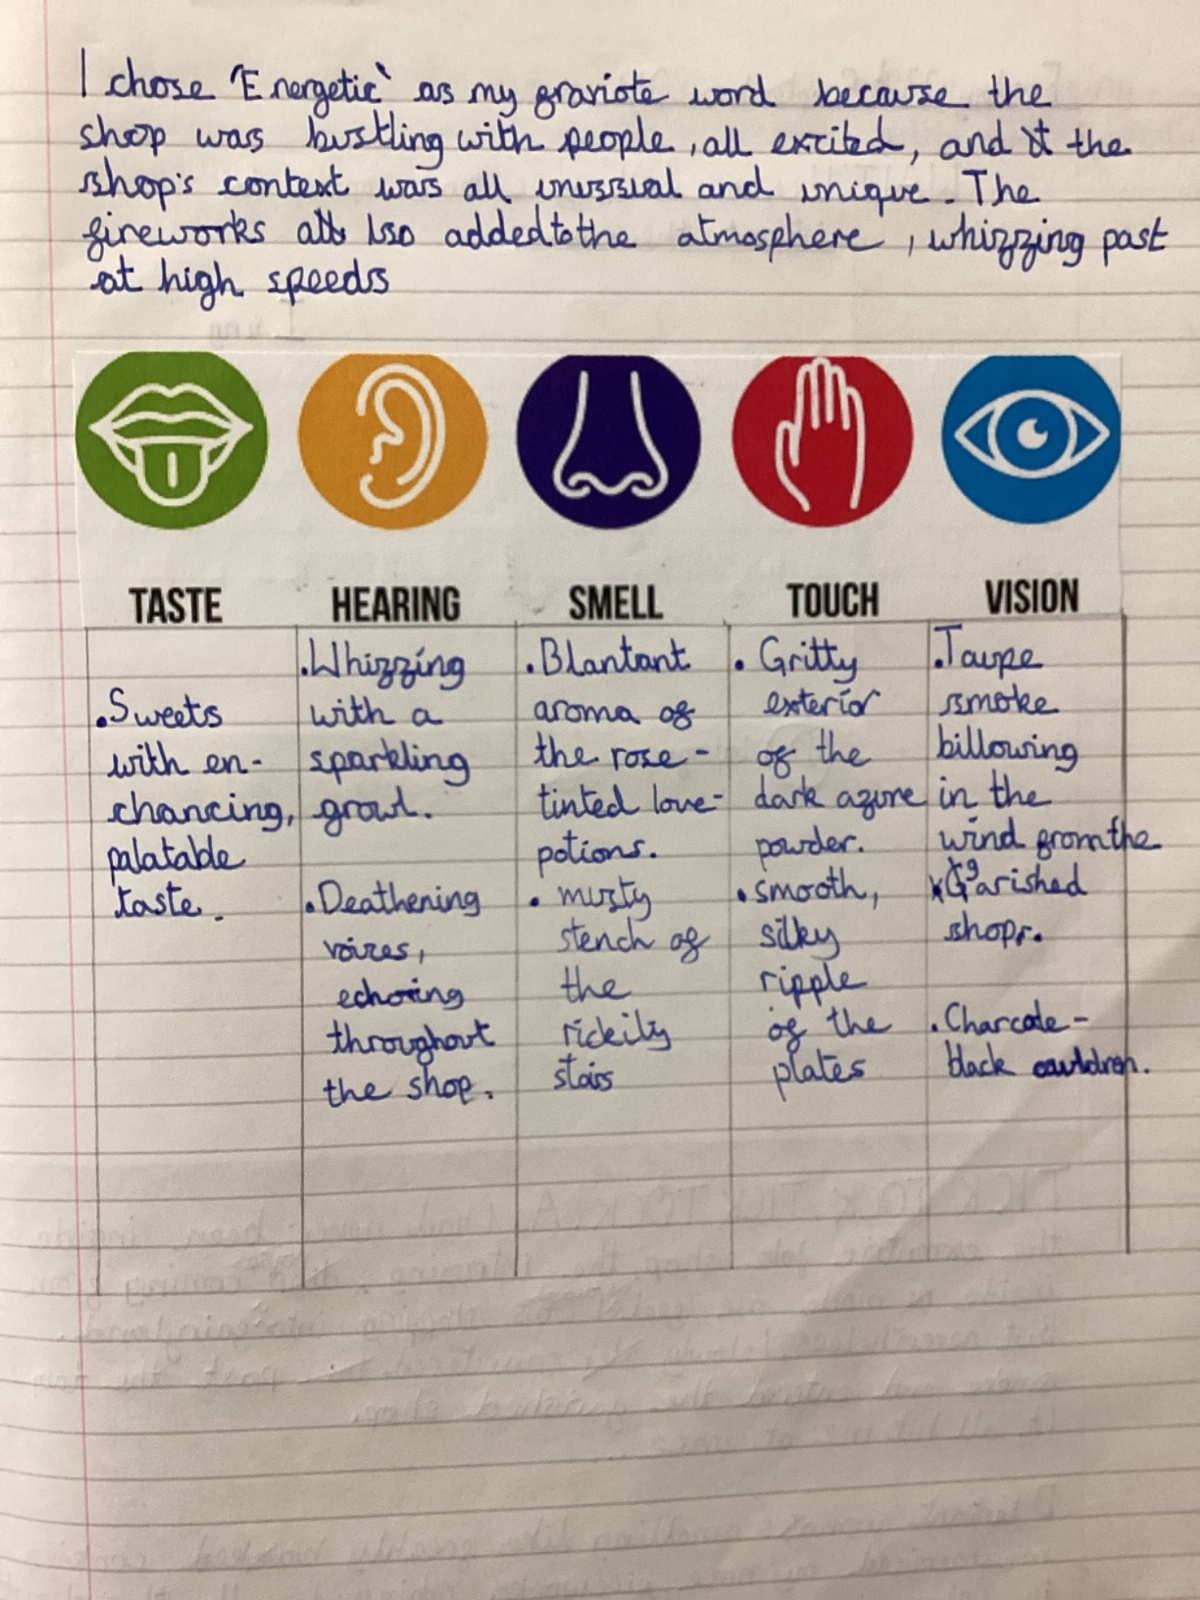 I chose 'Energetic' as my favriote word because the
shop was bustling with people, all excited, and the
shop's context was all unussual and unique. The
fireworks also added to the atmosphere, whizzing past
at high speeds
TASTE
HEARING
SMELL
TOUCH
VISION
.Sweets
with en-
chancing,
palatable
taste.
.Whizzing
with a
sparkling
growl.
.Deathening
voices,
echoing
throughout
the shop.
.Blantant
aroma of
the rose-
tinted love-
potions.
. musty
stench of
the
rickily
stairs
. Gritty
exterior
of the
dark azure
powder.
. smooth,
silky
ripple
of the
plates
.Taupe
smoke
billowing
in the
wind from the
Garished
shop.
.Charcole-
black cauldron.